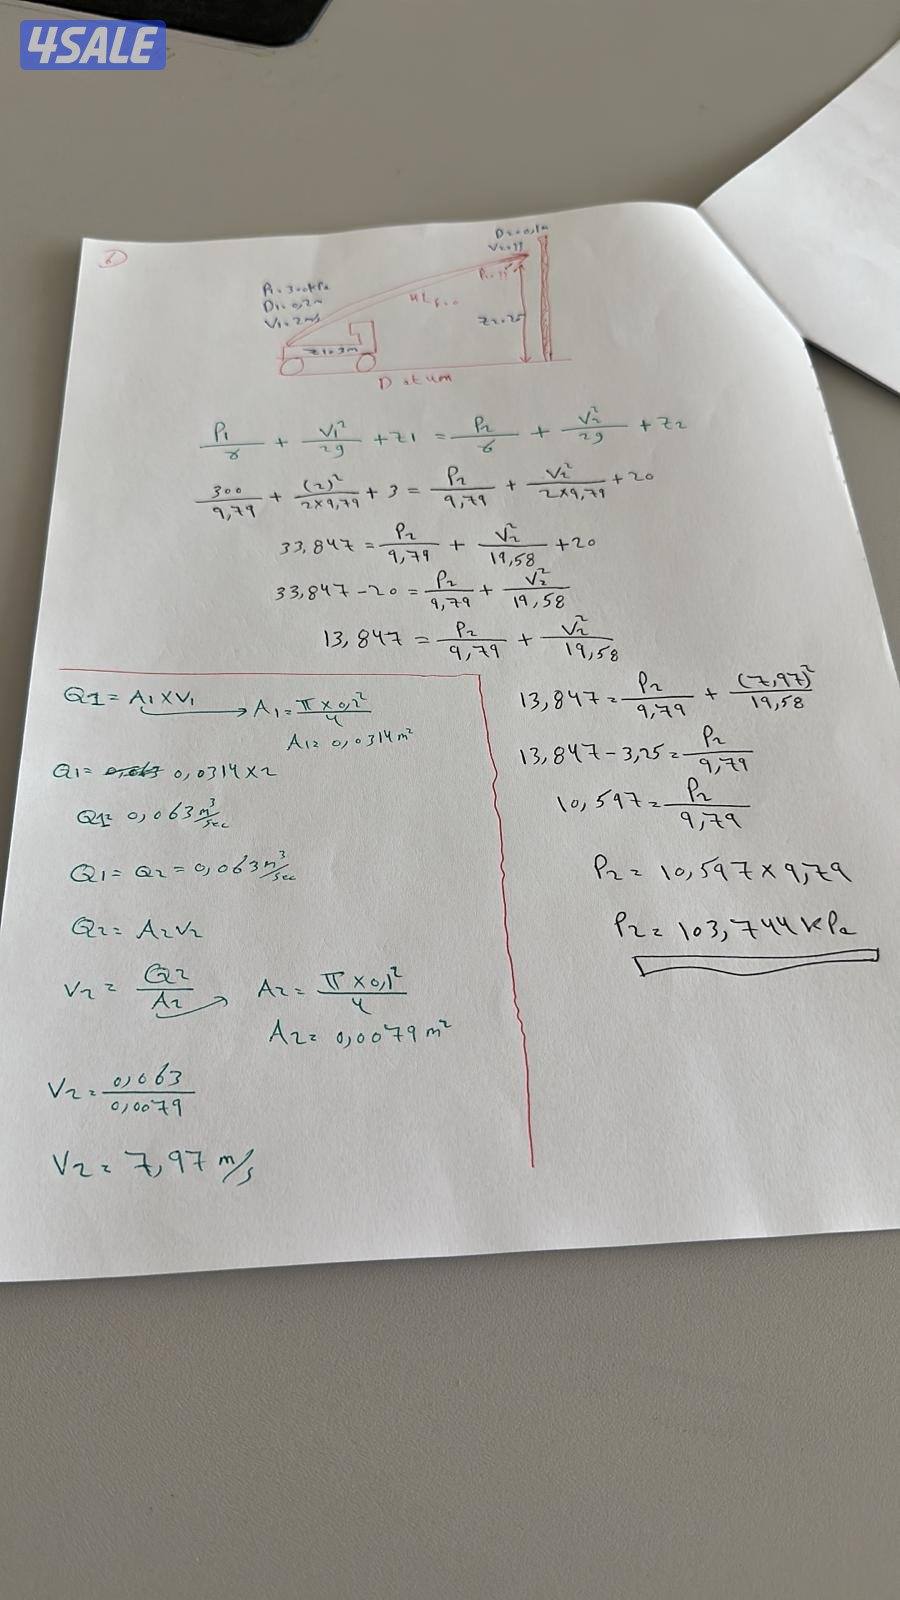 4SALE
D2=0,1m
V2=??
P2=??
P1=300kPa
D1=0,2m
V1=2m/s
HL
Z1=3m
Datum
P1/γ + V1²/2g + Z1 = P2/γ + V2²/2g + Z2
300/9,79 + (2)²/2×9,79 + 3 = P2/9,79 + V2²/2×9,79 + 20
33,847 = P2/9,79 + V2²/19,58 + 20
33,847 - 20 = P2/9,79 + V2²/19,58
13,847 = P2/9,79 + V2²/19,58
Q1 = A1 × V1 → A1 = π × 0,2²/4
A1 = 0,0314 m²
Q1 = 0,0314 × 2
Q1 = 0,063 m³/sec
Q1 = Q2 = 0,063 m³/sec
Q2 = A2V2
V2 = Q2/A2 → A2 = π × 0,1²/4
A2 = 0,0079 m²
V2 = 0,063/0,0079
V2 = 7,97 m/s
13,847 = P2/9,79 + (7,97)²/19,58
13,847 - 3,25 = P2/9,79
10,597 = P2/9,79
P2 = 10,597 × 9,79
P2 = 103,744 kPa